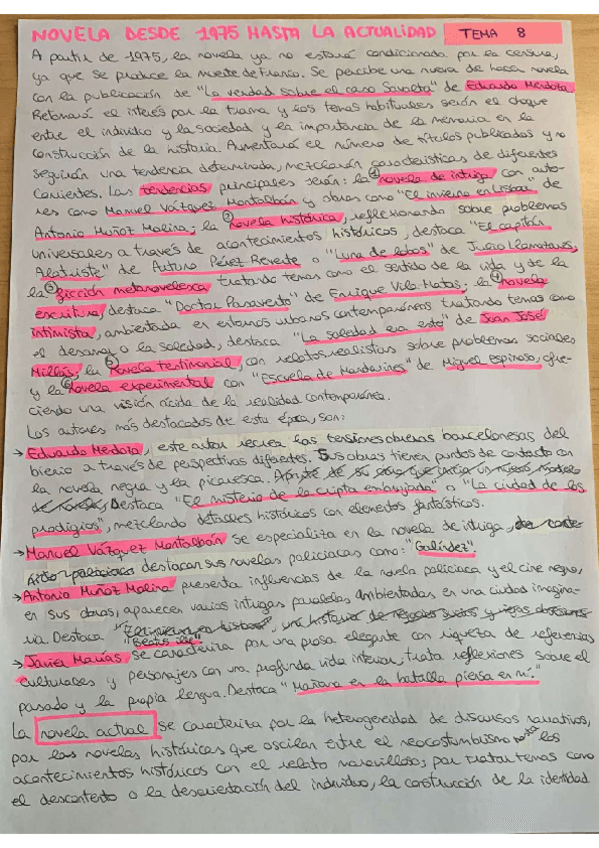 NOVELA DESDE 1975 HASTA LA ACTUALIDAD TEMA 8
A partir de 1975, la novela ya no estará condicionada por la censura,
ya que se produce la muerte de Franco. Se percibe una nueva de hacer novela
con la publicación de "La verdad sobre el caso Savolta" de Eduardo Mendoza.
Retomará el interés por la trama y los temas habituales serán el choque
entre el individuo y la sociedad y la importancia de la memoria en la
construcción de la historia. Aumentará el número de títulos publicados y no
seguirán una tendencia determinada, mezclarán características de diferentes
corrientes. Las tendencias principales serán: la ① novela de intriga con auto-
res como Manuel Vázquez Montalbán y obras como "El invierno en Lisboa" de
Antonio Muñoz Molina; la ② novela histórica, reflexionando sobre problemas
universales a través de acontecimientos históricos, destaca "El capitán
Alatriste" de Arturo Pérez Reverte o "Luna de lobos" de Julio Llamazares,
la ③ ficción metanovelesca tratando temas como el sentido de la vida y de la
escritura, destaca "Doctor Pasavento" de Enrique Vila Matas; la ④ novela
intimista, ambientada en entornos urbanos contemporáneos tratando temas como
el desamor o la soledad, destaca "La soledad era esto" de Juan José
Millás; la ⑤ novela testimonial, con relatos realistas sobre problemas sociales
y la ⑥ novela experimental con "Escuela de Mandarines" de Miguel espinosa, ofre-
ciendo una visión ácida de la realidad contemporánea.
Los autores más destacados de esta época, son:
→ Eduardo Mendoza, este autor recrea las tensiones obreras barcelonesas del
bienio a través de perspectivas diferentes. Sus obras tienen puntos de contacto con
la novela negra y la picaresca. Destaca "El misterio de la cripta embrujada" o "La ciudad de los
prodigios", mezclando detalles históricos con elementos fantásticos.
→ Manuel Vázquez Montalbán se especializa en la novela de intriga,
destacan sus novelas policiacas como: "Galíndez".
→ Antonio Muñoz Molina presenta influencias de la novela policiaca y el cine negro,
en sus obras, aparecen varias intrigas paralelas ambientadas en una ciudad imagina-
ria. Destaca "Beatus Ille"
→ Javier Marías se caracteriza por una prosa elegante con riqueza de referencias
culturales y personajes con una profunda vida interior, trata reflexiones sobre el
pasado y la propia lengua. Destaca "Mañana en la batalla piensa en mí."
La novela actual se caracteriza por la heterogeneidad de discursos narrativos,
por las novelas históricas que oscilan entre el neocostumbrismo los
acontecimientos históricos con el relato maravilloso; por tratar temas como
el descontento o la desorientación del individuo, la construcción de la identidad